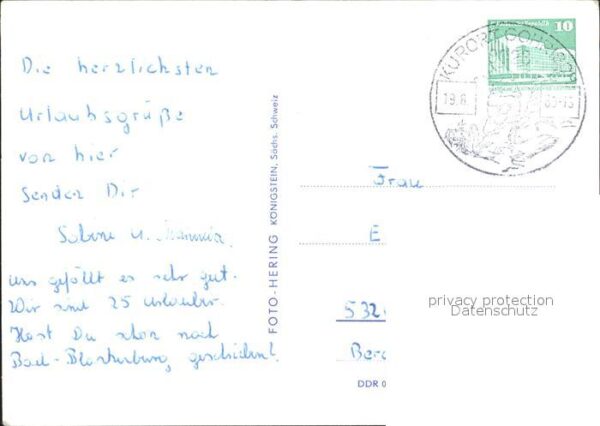 Die herzlichsten
Urlaubsgrüße
von hier
senden Dir
Sabine u.
uns gefällt es sehr gut.
Wir sind 25 Urlauber.
Hast Du schon nach
Bad-Blankenburg geschrieben?
FOTO-HERING KÖNIGSTEIN, Sächs. Schweiz
KURORT
10
19.8.
Frau
E
532
Ber
DDR 0
privacy protection
Datenschutz